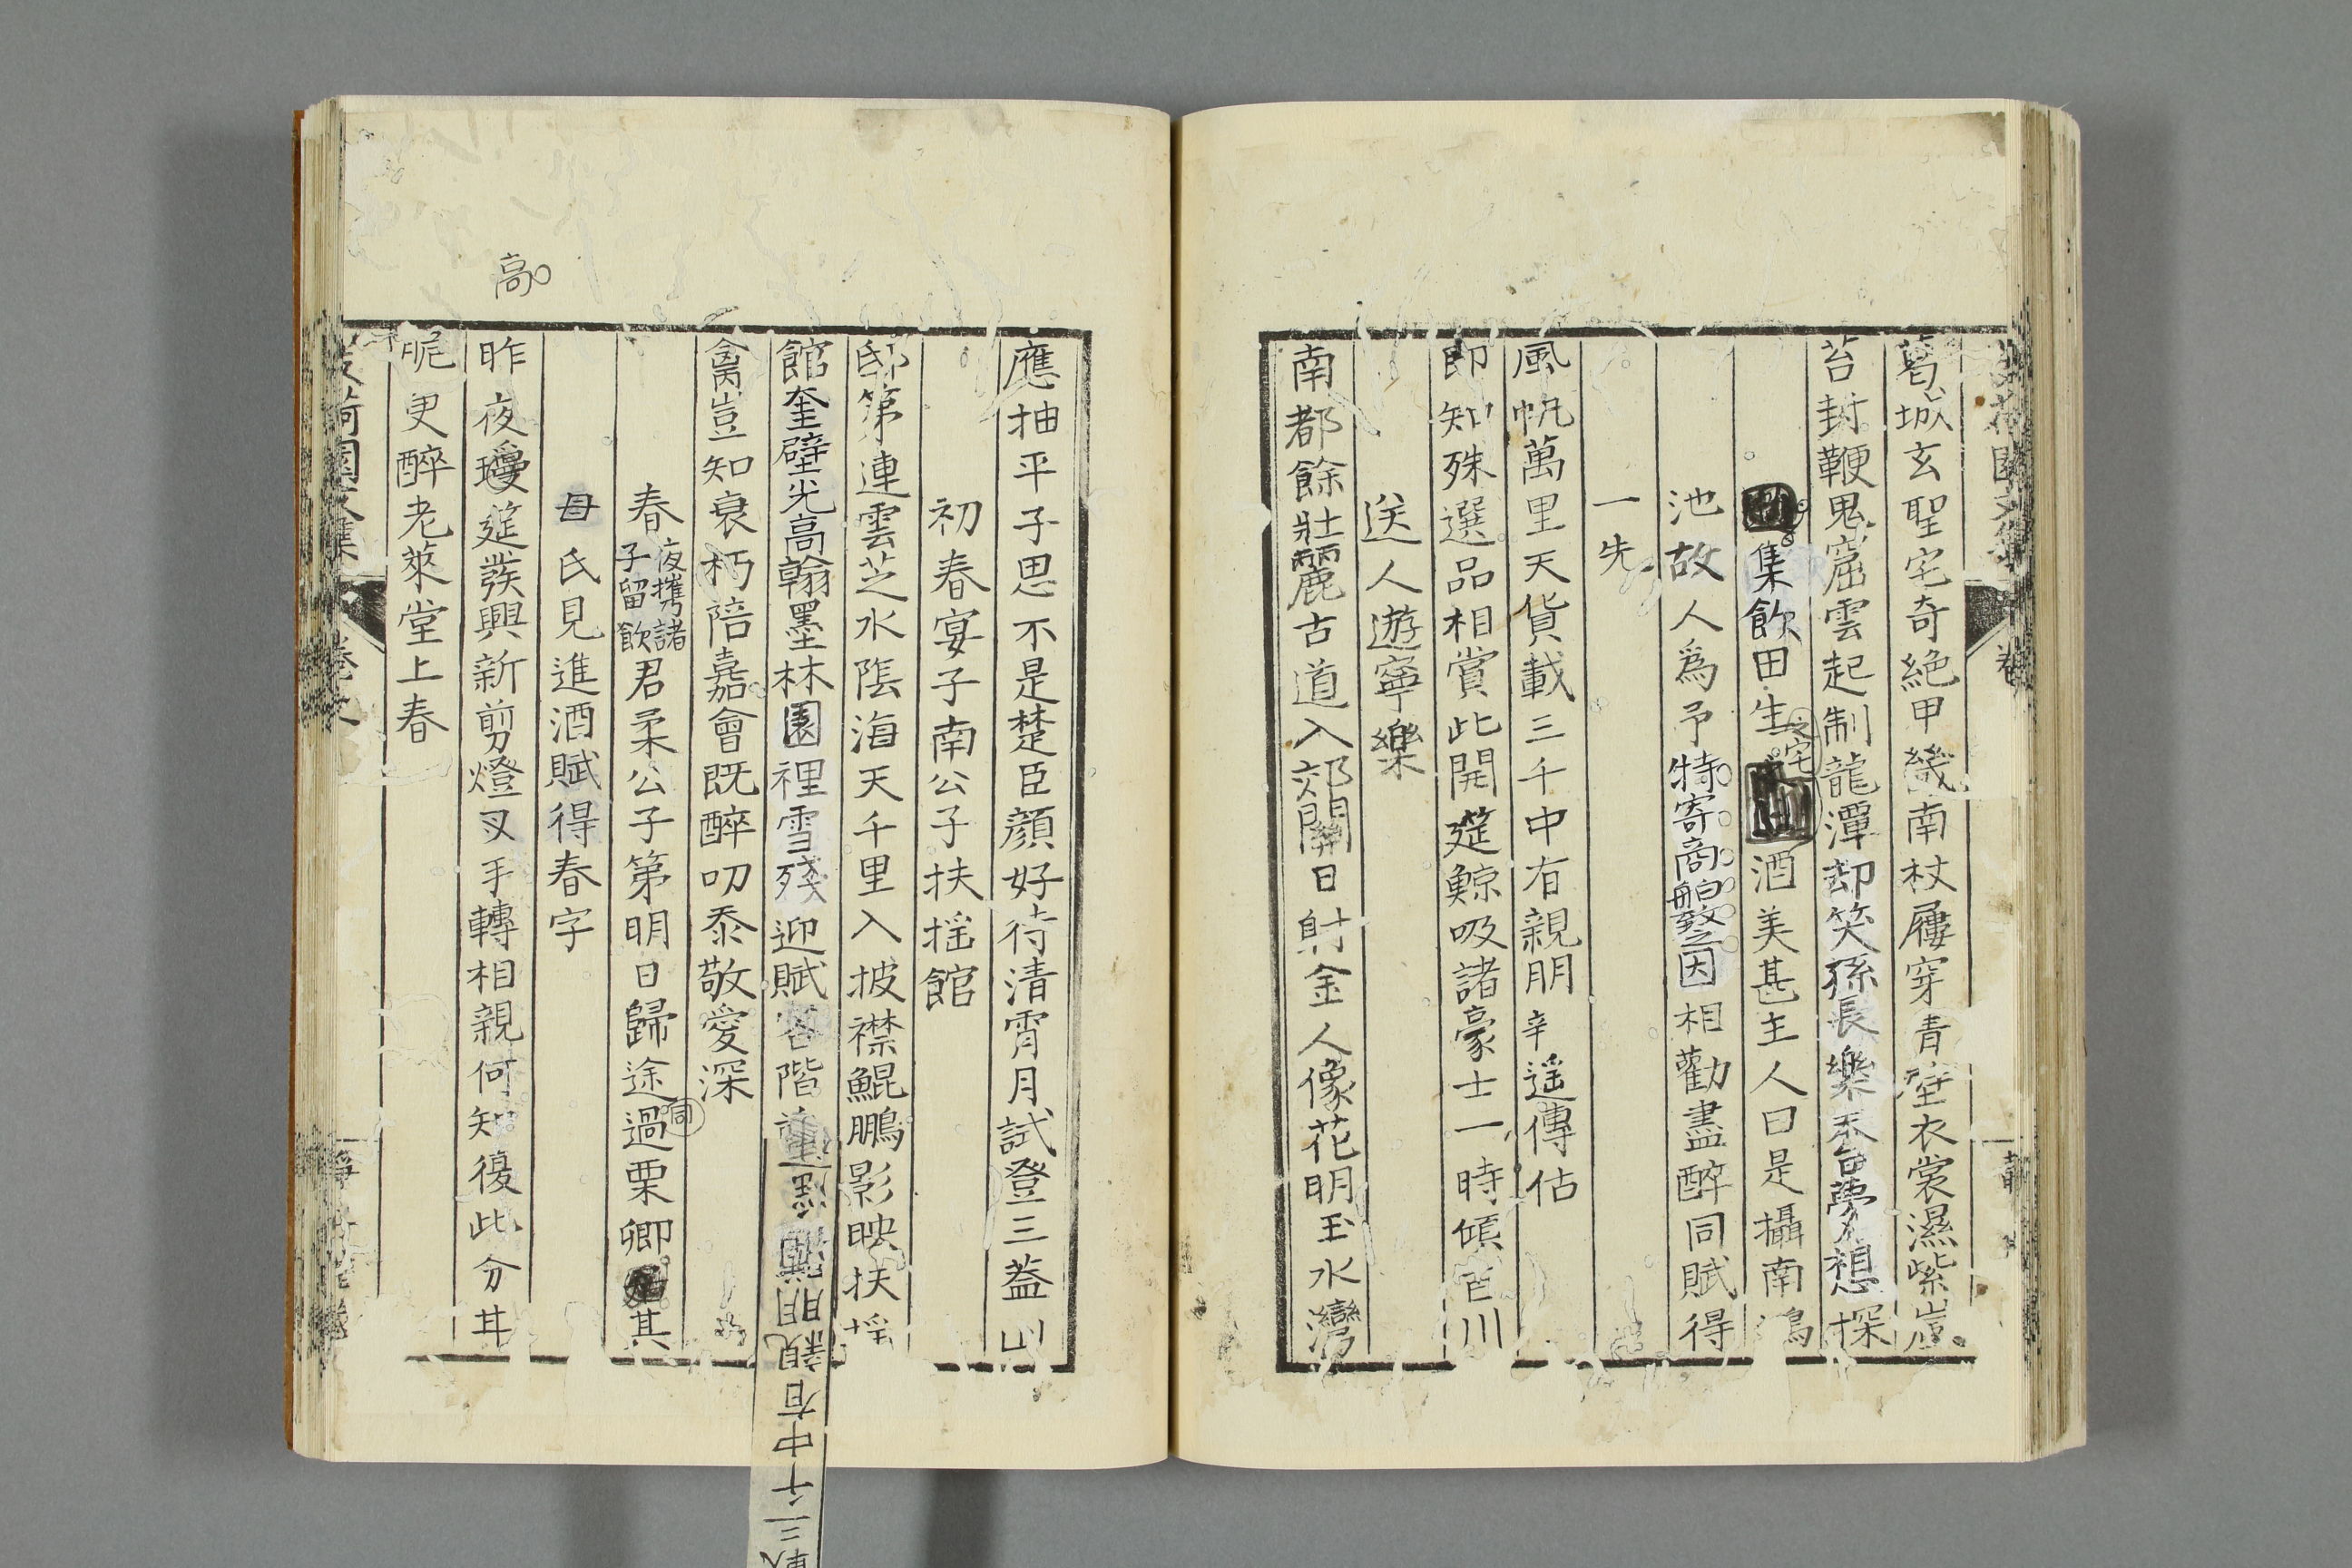 葛城玄聖宅奇絶甲畿南杖屨穿青壁衣裳濕紫嵐
苔封鞭鬼窟雲起制龍潭却笑孫長樂夢想探
集飲田生之宅酒美甚主人曰是攝南鴻
池故人爲予特寄商舶致之因相勸盡醉同賦得
一先
風帆萬里天貨載三千中有親朋辛遥傳估
即知殊選品相賞此開筵鯨吸諸豪士一時傾百川
送人遊寧樂
南都餘壯麗古道入郊關日射金人像花明玉水灣
應抽平子思不是楚臣顔好待清宵月試登三蓋山
初春宴子南公子扶揺館
邸第連雲芝水隂海天千里入披襟鯤鵬影映扶揺
館奎壁光高翰墨林園裡雪殘迎賦客階
禽豈知衰朽陪嘉會既醉叨忝敬愛深
春夜攜諸子留飲君柔公子第明日歸途過同栗卿其
母氏見進酒賦得春字
昨夜瓊筵發興新剪燈叉手轉相親何知復此分甘
昵更醉老萊堂上春
高
中有親朋